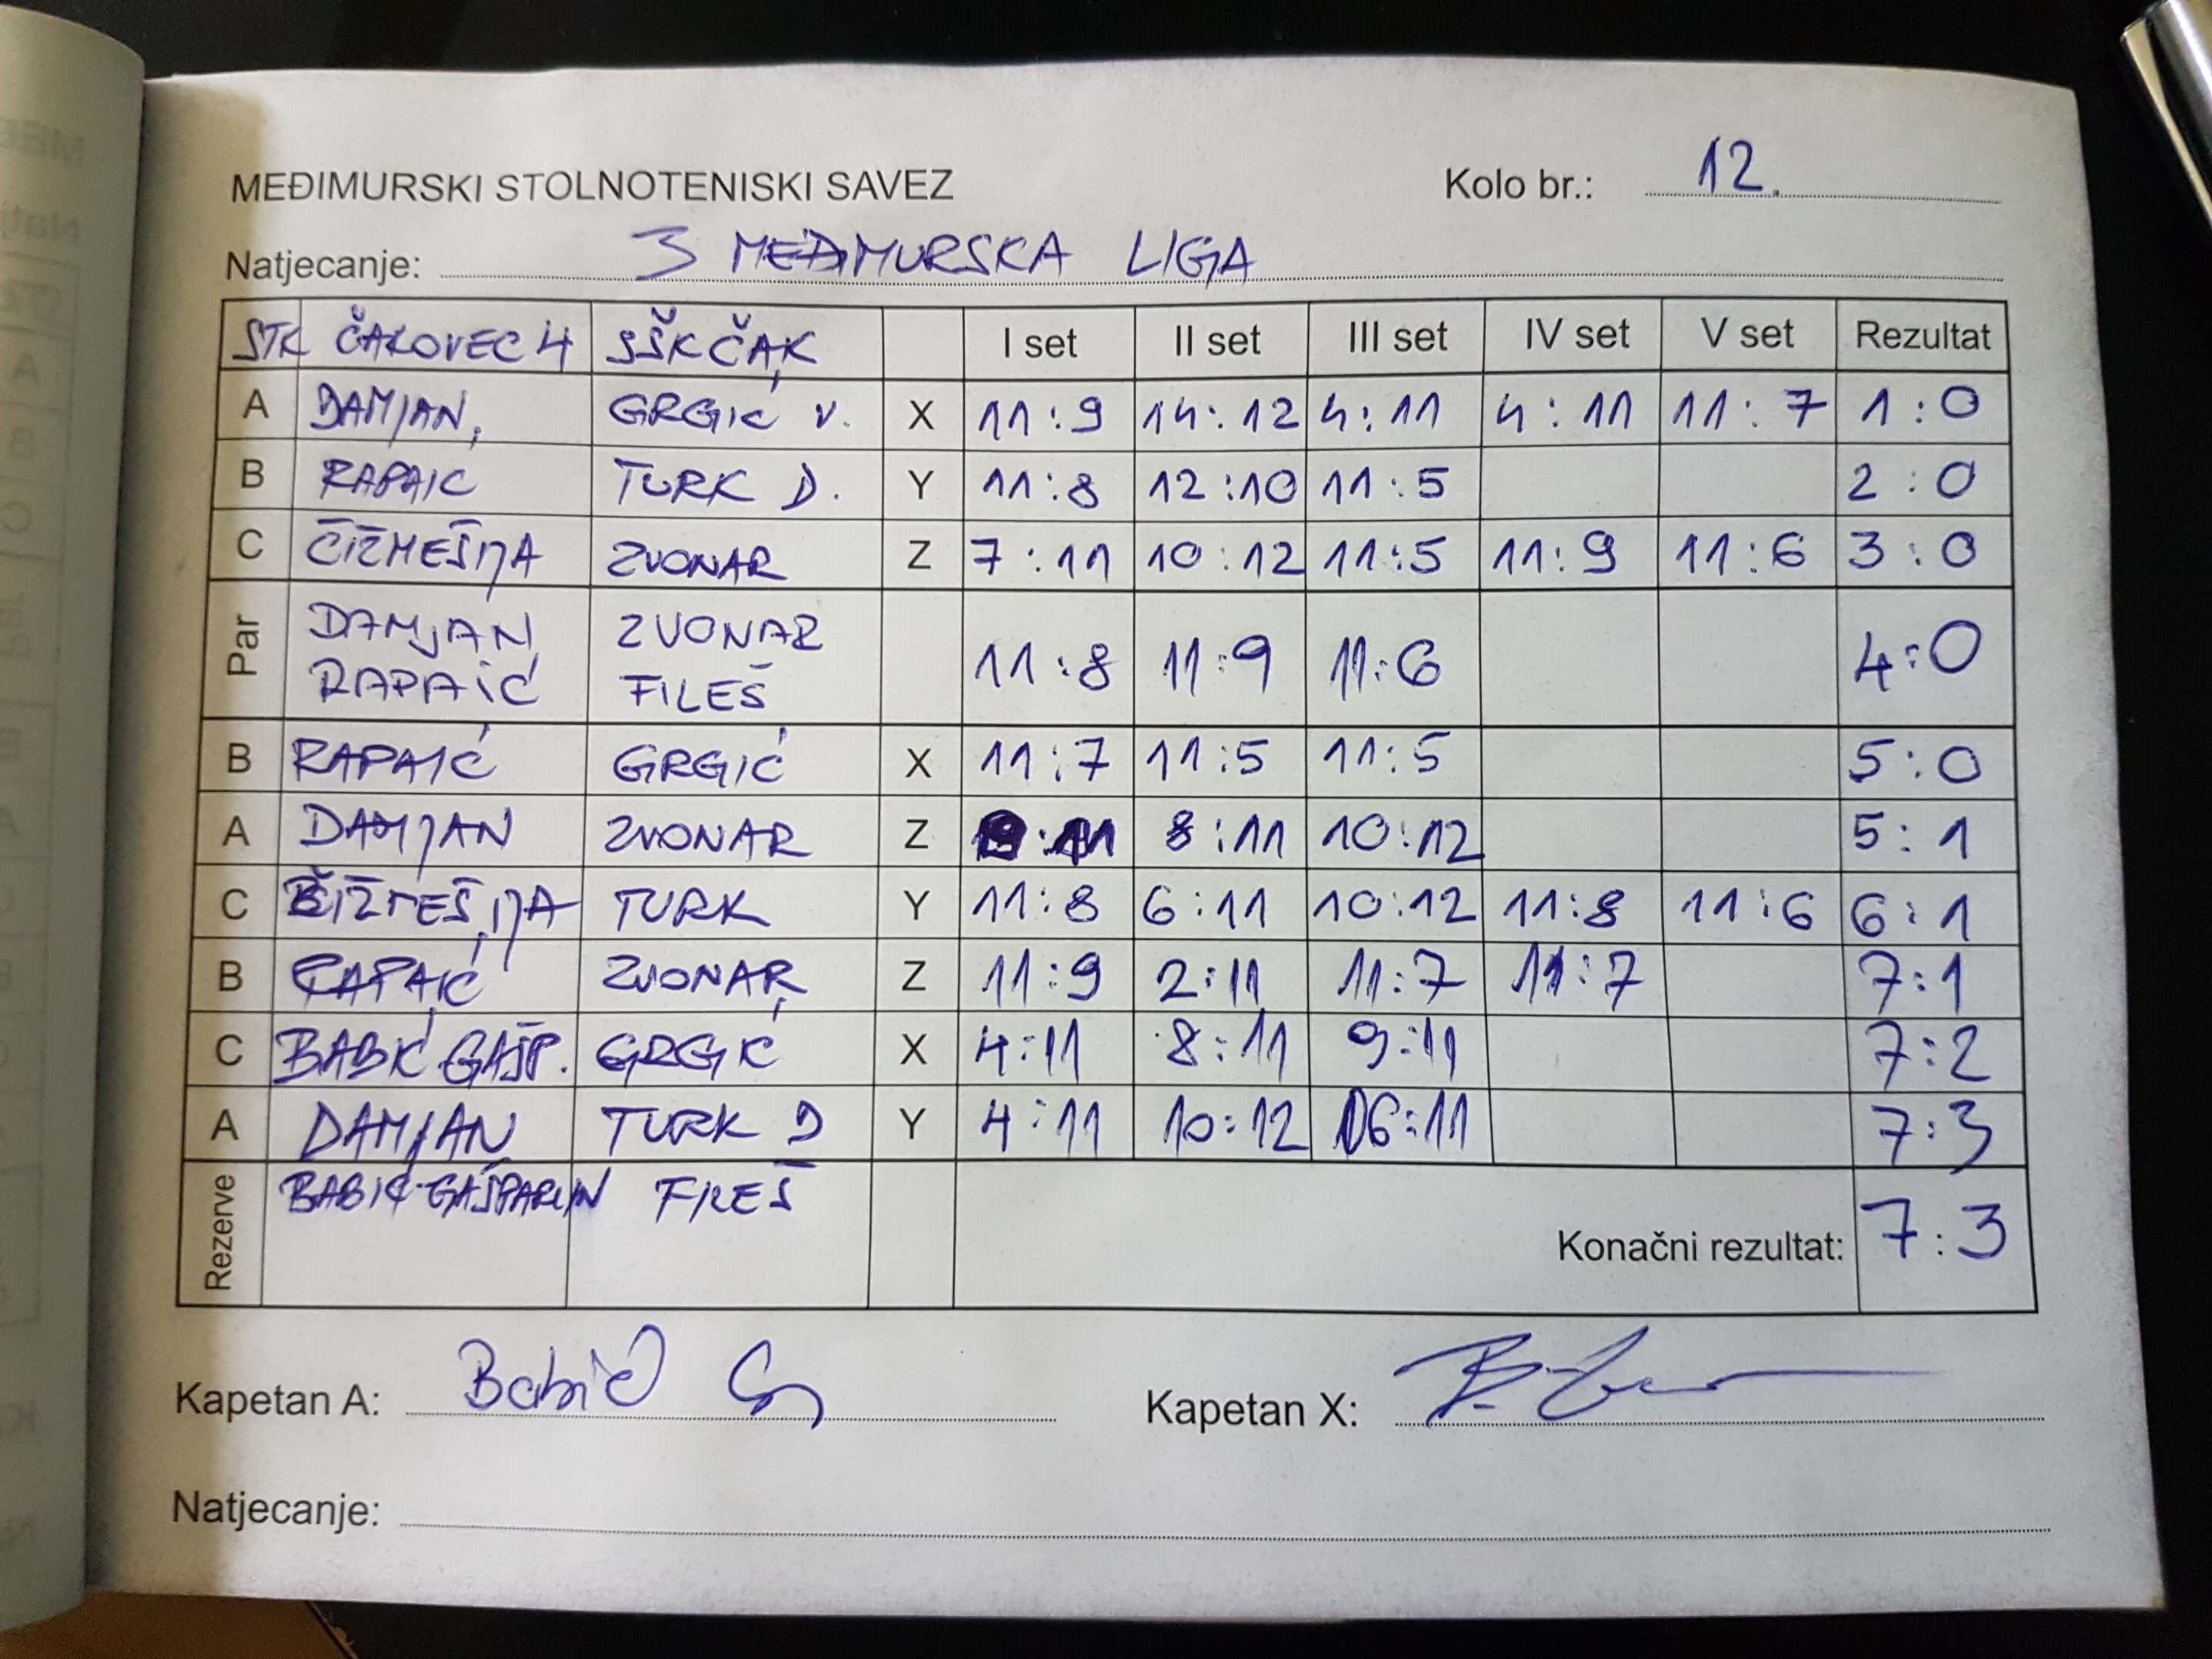 MEĐIMURSKI STOLNOTENISKI SAVEZ Kolo br.: 12.
Natjecanje: 3 MEĐIMURSKA LIGA
STK ČAKOVEC 4 SŠK ČAK I set II set III set IV set V set Rezultat
A DAMJAN, GRGIĆ V. X 11:9 14:12 4:11 4:11 11:7 1:0
B RAPAIC TURK D. Y 11:8 12:10 11:5 2:0
C ČIŽMEŠIJA ZVONAR Z 7:11 10:12 11:5 11:9 11:6 3:0
Par DAMJAN ZVONAR 11:8 11:9 11:6 4:0
RAPAIĆ FILEŠ
B RAPAIĆ GRGIĆ X 11:7 11:5 11:5 5:0
A DAMJAN ZVONAR Z :11 8:11 10:12 5:1
C ČIŽMEŠIJA TURK Y 11:8 6:11 10:12 11:8 11:6 6:1
B RAPAIĆ ZVONAR Z 11:9 2:11 11:7 11:7 7:1
C BABIĆ GAŠP. GRGIĆ X 4:11 8:11 9:11 7:2
A DAMJAN TURK D Y 4:11 10:12 6:11 7:3
Rezerve BABIĆ-GAŠPARLIN FILEŠ
Konačni rezultat: 7:3
Kapetan A: Babić Kapetan X:
Natjecanje: